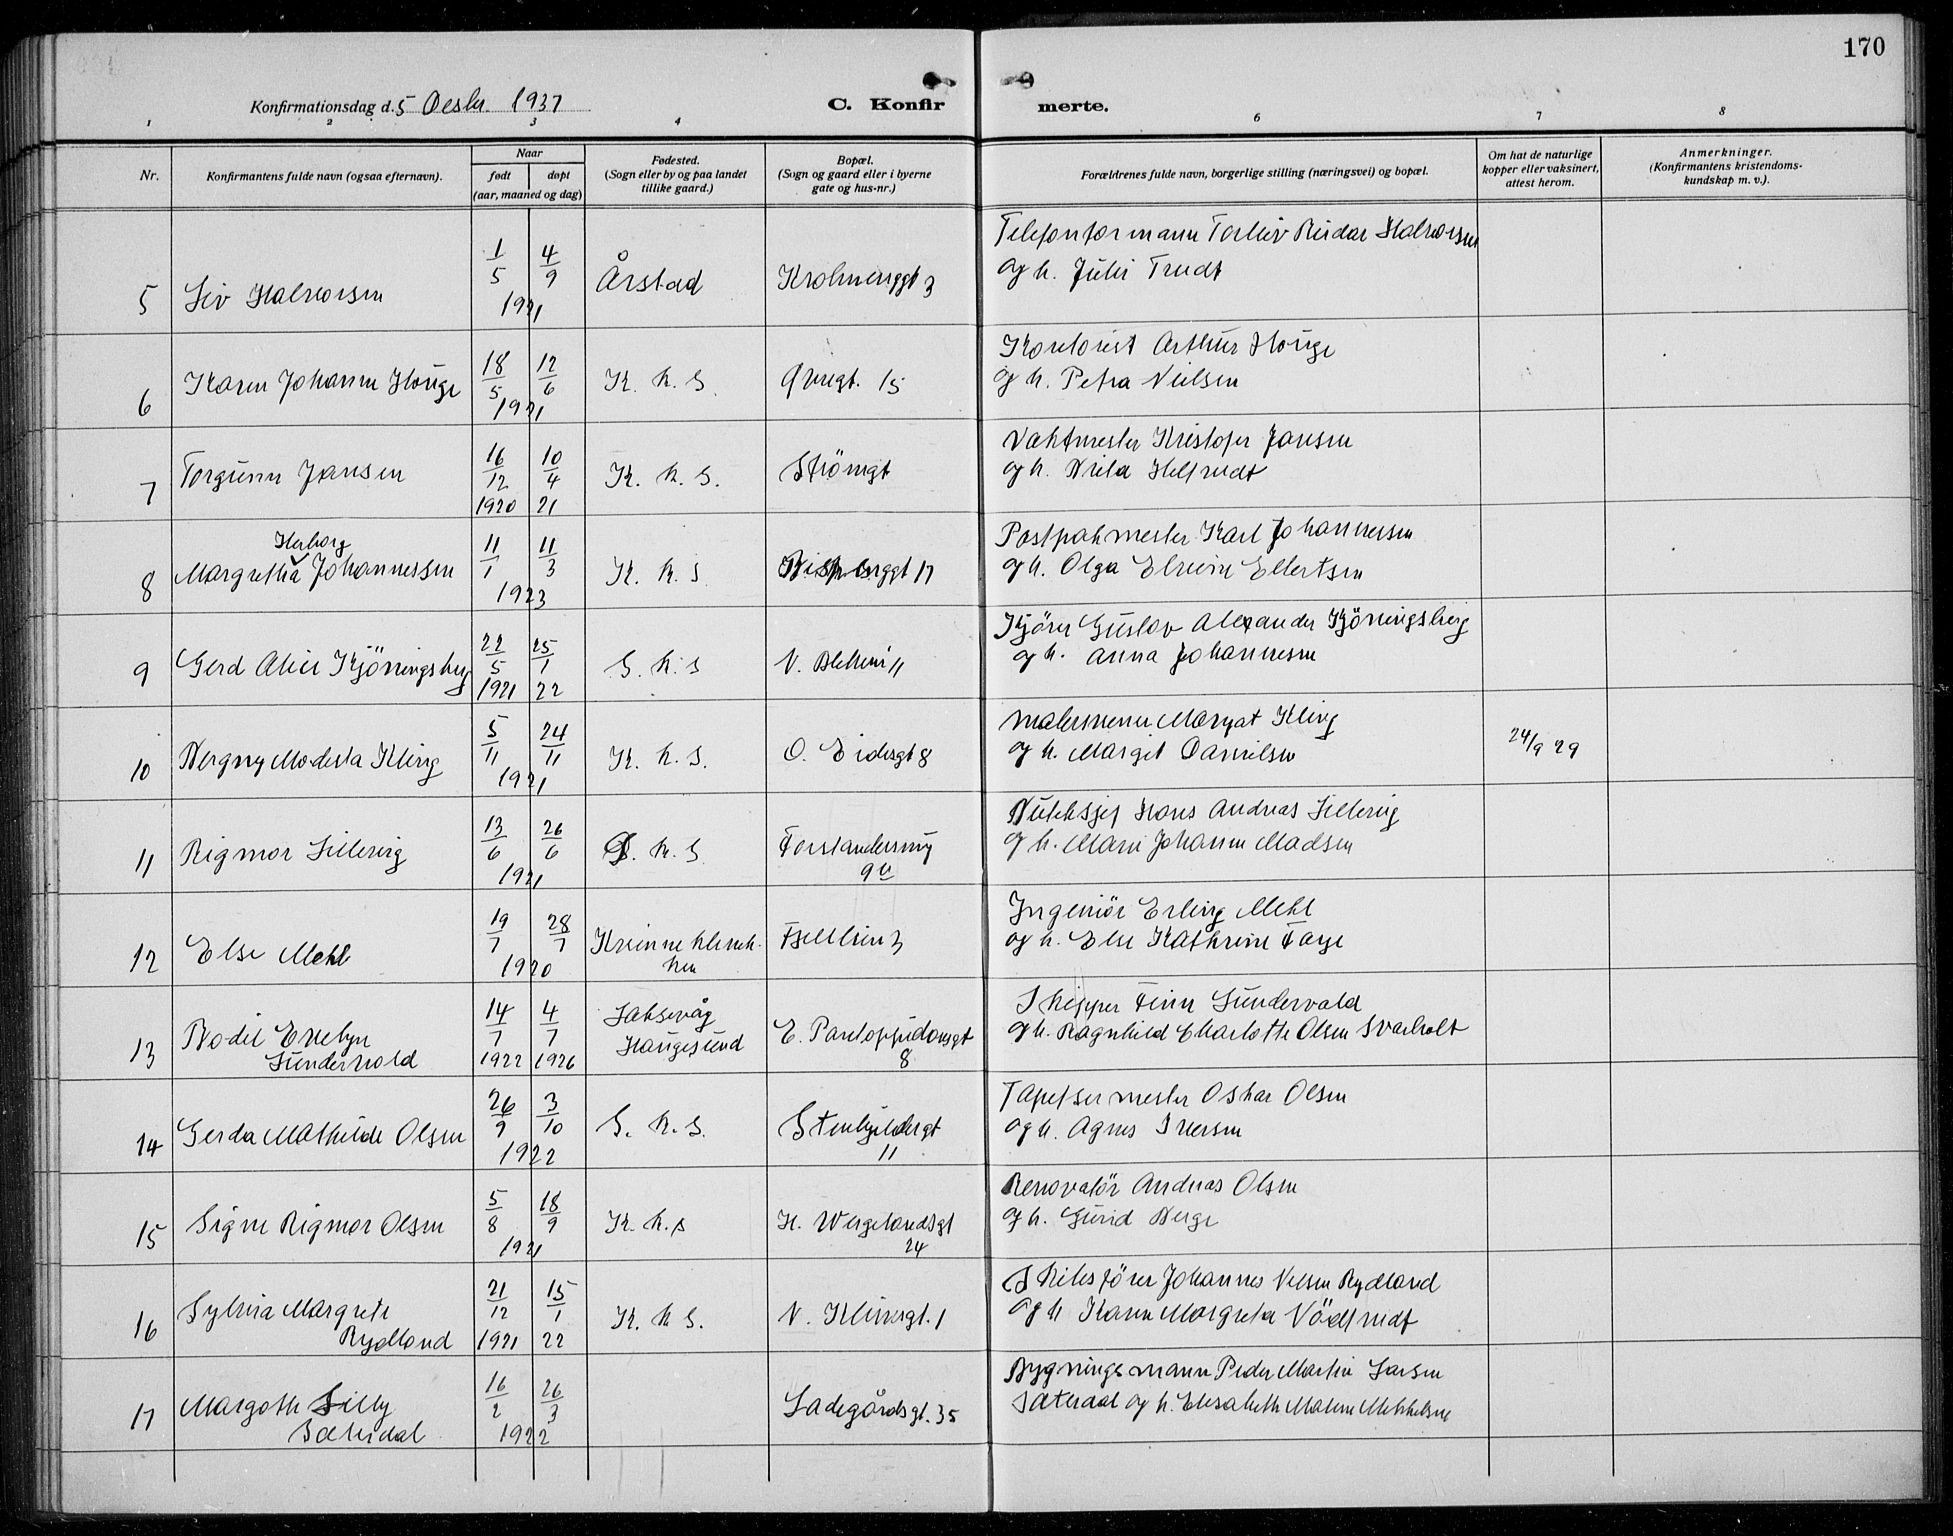 170
Konfirmationsdag d. 5 Desbr. 1937
C. Konfir merte.
1 2 3 4 6 7 8
Nr.
Konfirmantens fulde navn (ogsaa efternavn).
Naar
født døpt
(aar, maaned og dag)
Fødested.
(Sogn eller by og paa landet
tillike gaard.)
Bopæl.
(Sogn og gaard eller i byerne
gate og hus-nr.)
Forældrenes fulde navn, borgerlige stilling (næringsvei) og bopæl.
Om hat de naturlige
kopper eller vaksinert,
attest herom.
Anmerkninger.
(Konfirmantens kristendoms-
kundskap m. v.).
5 Liv Halvorsen 1/5 4/9 1921 Årstad Krohnenggt 3
Telefonformann Torleiv Reidar Halvorsen
og h. Julie Trudt
6 Karen Johanne Houge 18/5 12/6 1921 K. k. S. Øvregt. 15
Kontorist Arthur Houge
og h. Petra Nielsen
7 Torgunn Jansen 16/12 1920 10/4 21 K. k. S. Strömgt
Vaktmester Kristofer Jansen
og h.
8 Margretha Herborg Johannessen 11/1 11/3 1923 K. k. S. 17
Postpakmester Karl Johannessen
og h. Olga Elvine Ellertsen
9 Gerd Alice Kjönningsberg 22/5 1921 25/1 22 S. k. S N. Blekevei 11
Kjörer Gustav Alexander Kjönningsberg
og h. Anna Johannesen
10 Bergny Modesta Kling 5/11 24/11 1921 K. k. S. O. Eidesgt 8
Malersvenn Margat Kling
og h. Margit Danielsen
24/9 29
11 Rigmor Sillevig 13/6 26/6 1921 D. k. S. Forstandersmug
9 u
Hans Andreas Sillevig
og h. Marie Johanne Madsen
12 Else Mehl 19/7 28/7 1920 Kvinneklinik-
ken Fjellveien 3
Ingeniör Erling Mehl
og h. Else Kathrine Faye
13 Bodil Evelyn
Sundervold 14/7 1922 4/7 1926 Laksevåg
Haugesund E. Pontoppidansgt
8
Skipper Finn Sundervold
og h. Ragnhild Charlotte Olsen Svarholt
14 Gerda Mathilde Olsen 26/9 3/10 1922 S. k. S. Stenkjeldergt
11
Tapetsermester Oskar Olsen
og h. Agnes Iversen
15 Signe Rigmor Olsen 5/8 18/9 1921 K. k. s H. Wergelandsgt
24
Renovatör Andreas Olsen
og h. Gurid Berge
16 Sylvia Margrete
Rydland 21/12 1921 15/1 22 K. k. S. N. Klivregt. 1
Johannes Nilsen Rydland
og h Karen Margreta Vödtrudt
17 Margoth Lilly
Sæterdal 16/2 26/3 1922 Ladegårdsgt. 35
Bygningsmann Peder Martin Larsen
Sæterdal og h. Elisabeth Malene Mikkelsen